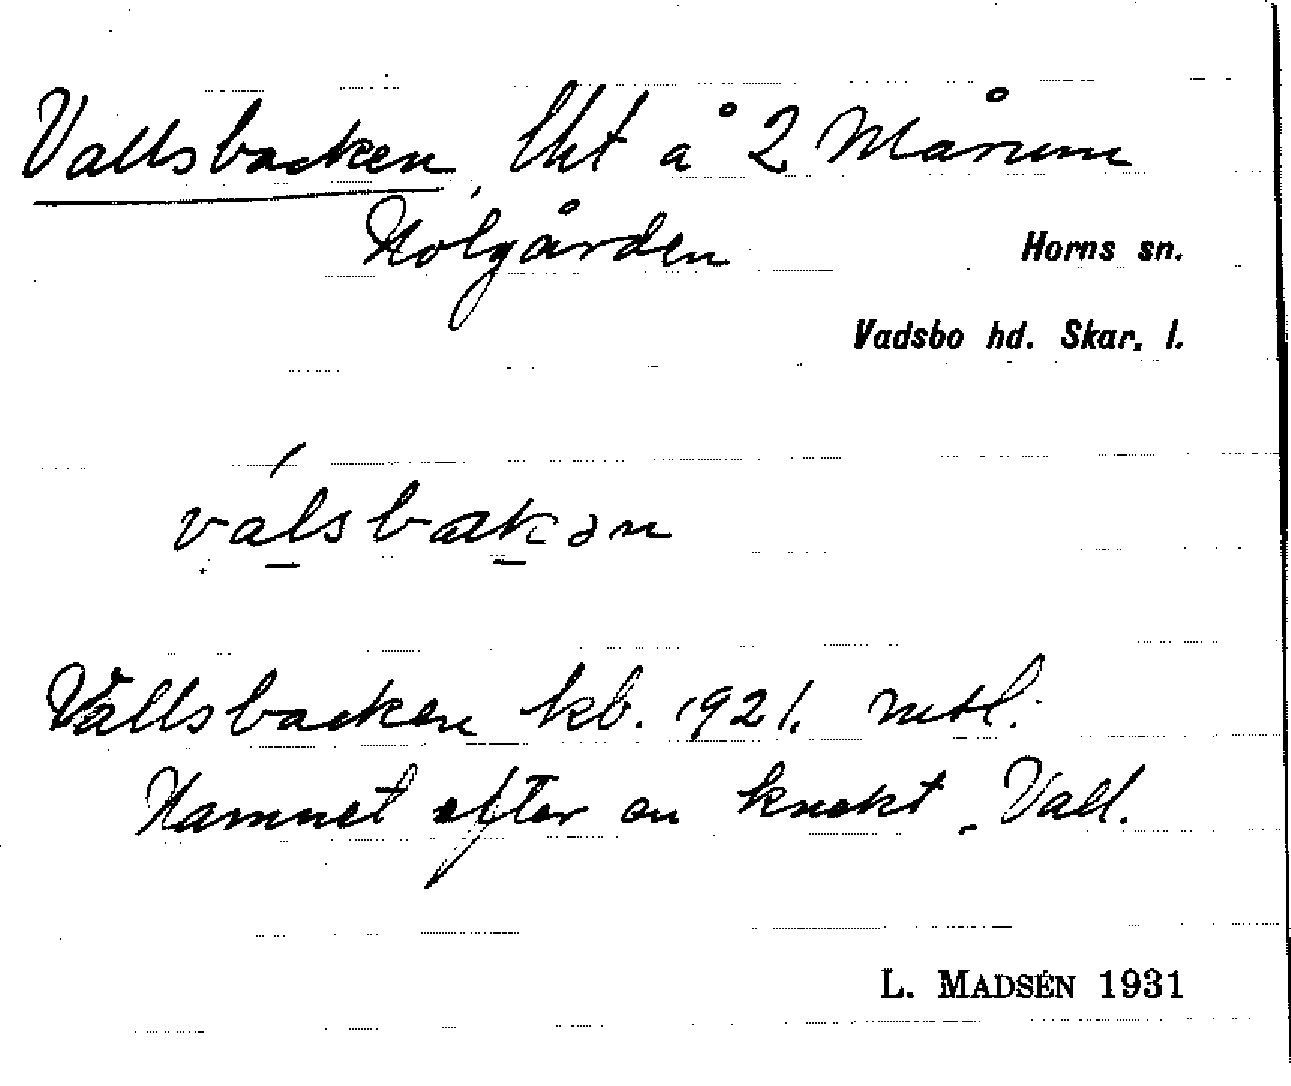 Vallsbacken, lht å 2 Mårum
Holgården
Horns sn.
Vadsbo hd. Skar. l.
válsbakən
Vallsbacken kb. 1921. mtl.
Namnet efter en knekt, Vall.
L. MADSÉN 1931